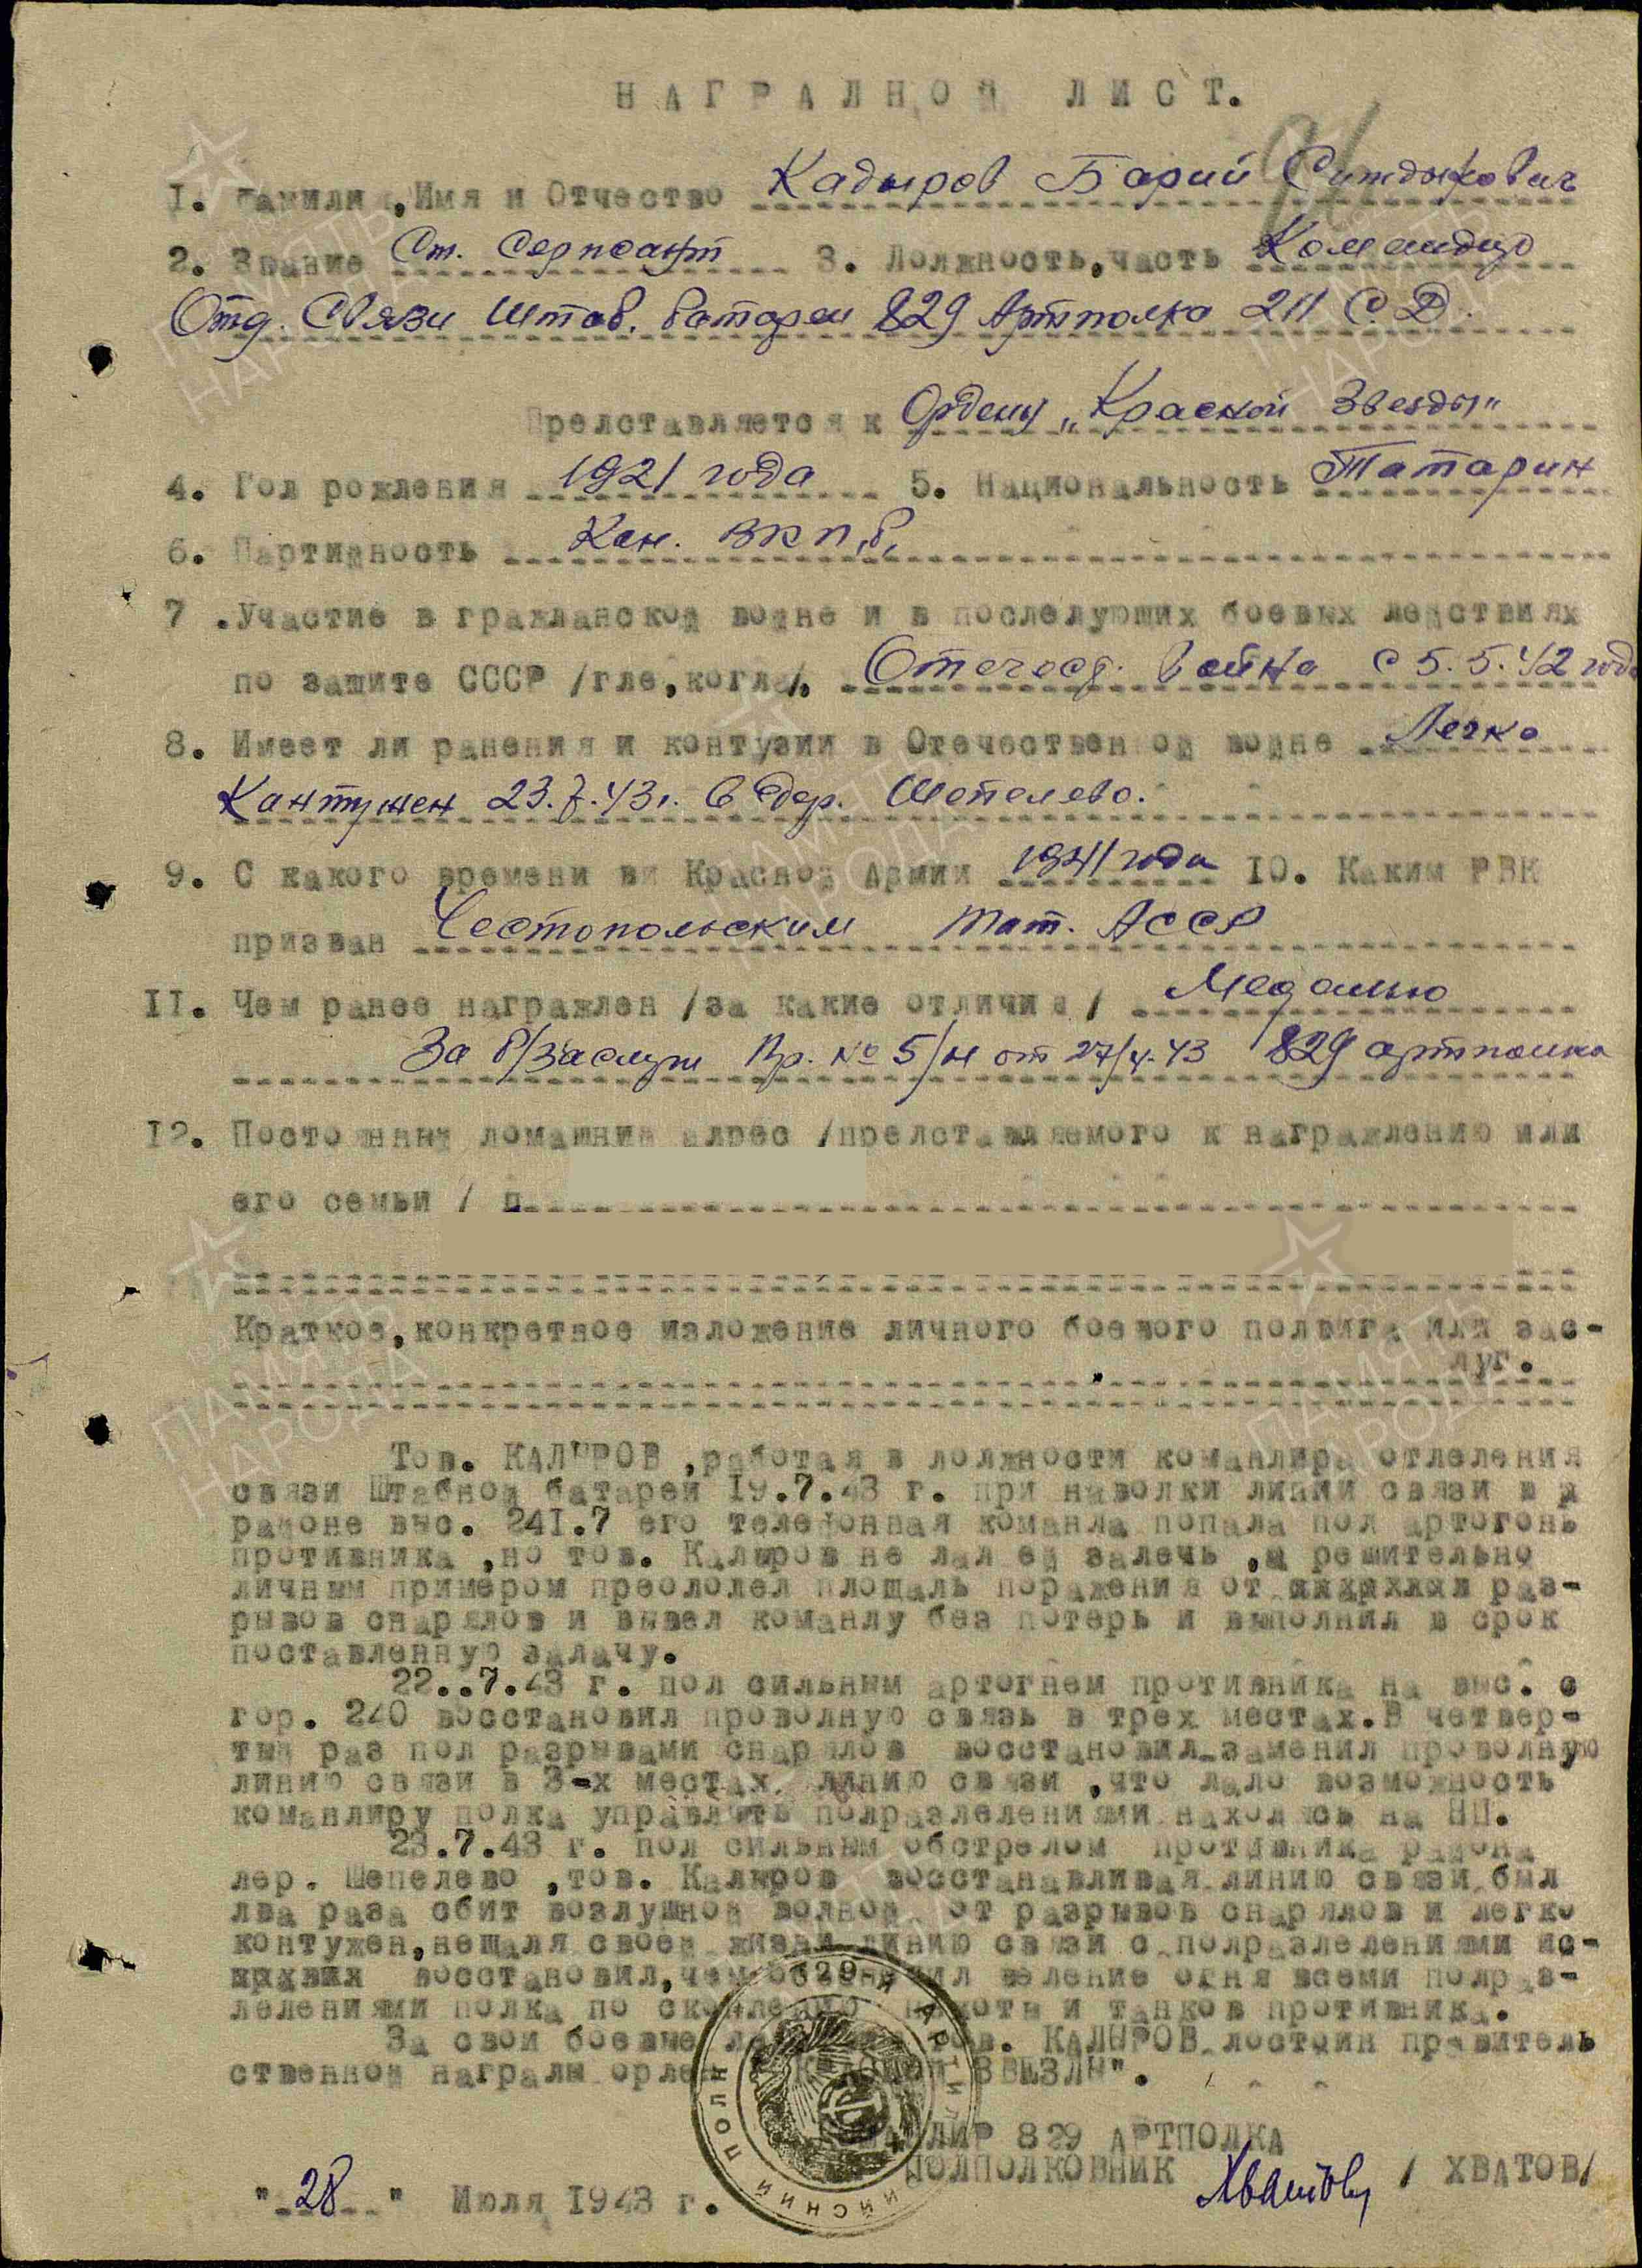 НАГРАДНОЙ ЛИСТ.
1. Фамилия, Имя и Отчество Кадыров Барий Ситдыкович
2. Звание Ст. Сержант 3. Должность, часть Командир
Отд. Связи Штаб. батареи 829 Артполка 211 С.Д.
Представляется к Ордену „Красной Звезды"
4. Год рождения 1921 года 5. Национальность Татарин
6. Партийность Кан. ВКП.б.
7. Участие в гражданской войне и в последующих боевых действиях
по защите СССР /где, когда/. Отечест. война с 5.5.42 года
8. Имеет ли ранения и контузии в Отечественной войне Легко
Кантужен 23.7.43г. в дер. Шепелево.
9. С какого времени в Красной Армии 1941 года 10. Каким РВК
призван Чистопольским Тат. АССР
11. Чем ранее награжден /за какие отличия/ Медалью
За б/заслуги Пр. № 5/н от 27/4.43 829 артполка
12. Постоянный домашний адрес /представляемого к награждению или
его семьи /
Краткое, конкретное изложение личного боевого подвига или зас-
луг.
Тов. КАДЫРОВ, работая в должности командира отделения
связи Штабной батареи 19.7.43 г. при наводки линии связи в
районе выс. 241.7 его телефонная команда попала под артогонь
противника, но тов. Кадыров не дал ей залечь, а решительно
личным примером преодолел площадь поражения от раз-
рывов снарядов и вывел команду без потерь и выполнил в срок
поставленную задачу.
22..7.43 г. под сильным артогнем противника на выс. с
гор. 240 восстановил проводную связь в трех местах. В четвер-
тый раз под разрывами снарядов восстановил-заменил проводную
линию связи в 3-х местах линию связи, что дало возможность
командиру полка управлять подразделениями находясь на НП.
23.7.43 г. под сильным обстрелом противника района
дер. Шепелево, тов. Кадыров восстанавливая линию связи был
два раза сбит воздушной волной от разрывов снарядов и легко
контужен, нещадя своей жизни линию связи с подразделениями ис-
восстановил, чем обеспечил ведение огня всеми подраз-
делениями полка по скоплению пехоты и танков противника.
За свои боевые тов. КАДЫРОВ достоин правитель
ственной награды орден КРАСНОЙ ЗВЕЗДЫ".
КОМАНДИР 829 АРТПОЛКА
ПОДПОЛКОВНИК Хватов / ХВАТОВ/
"28" Июля 1943 г.
829 Й АРТИЛЛЕРИЙСКИЙ ПОЛК
ПАМЯТЬ НАРОДА